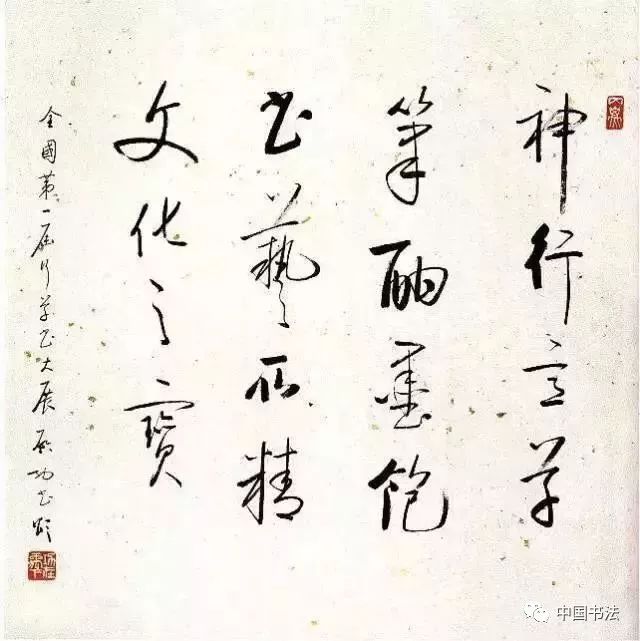 神行草
筆酣墨飽
書藝所精
文化之寶
全國第一屆行草書大展 啟功書頌
中国书法